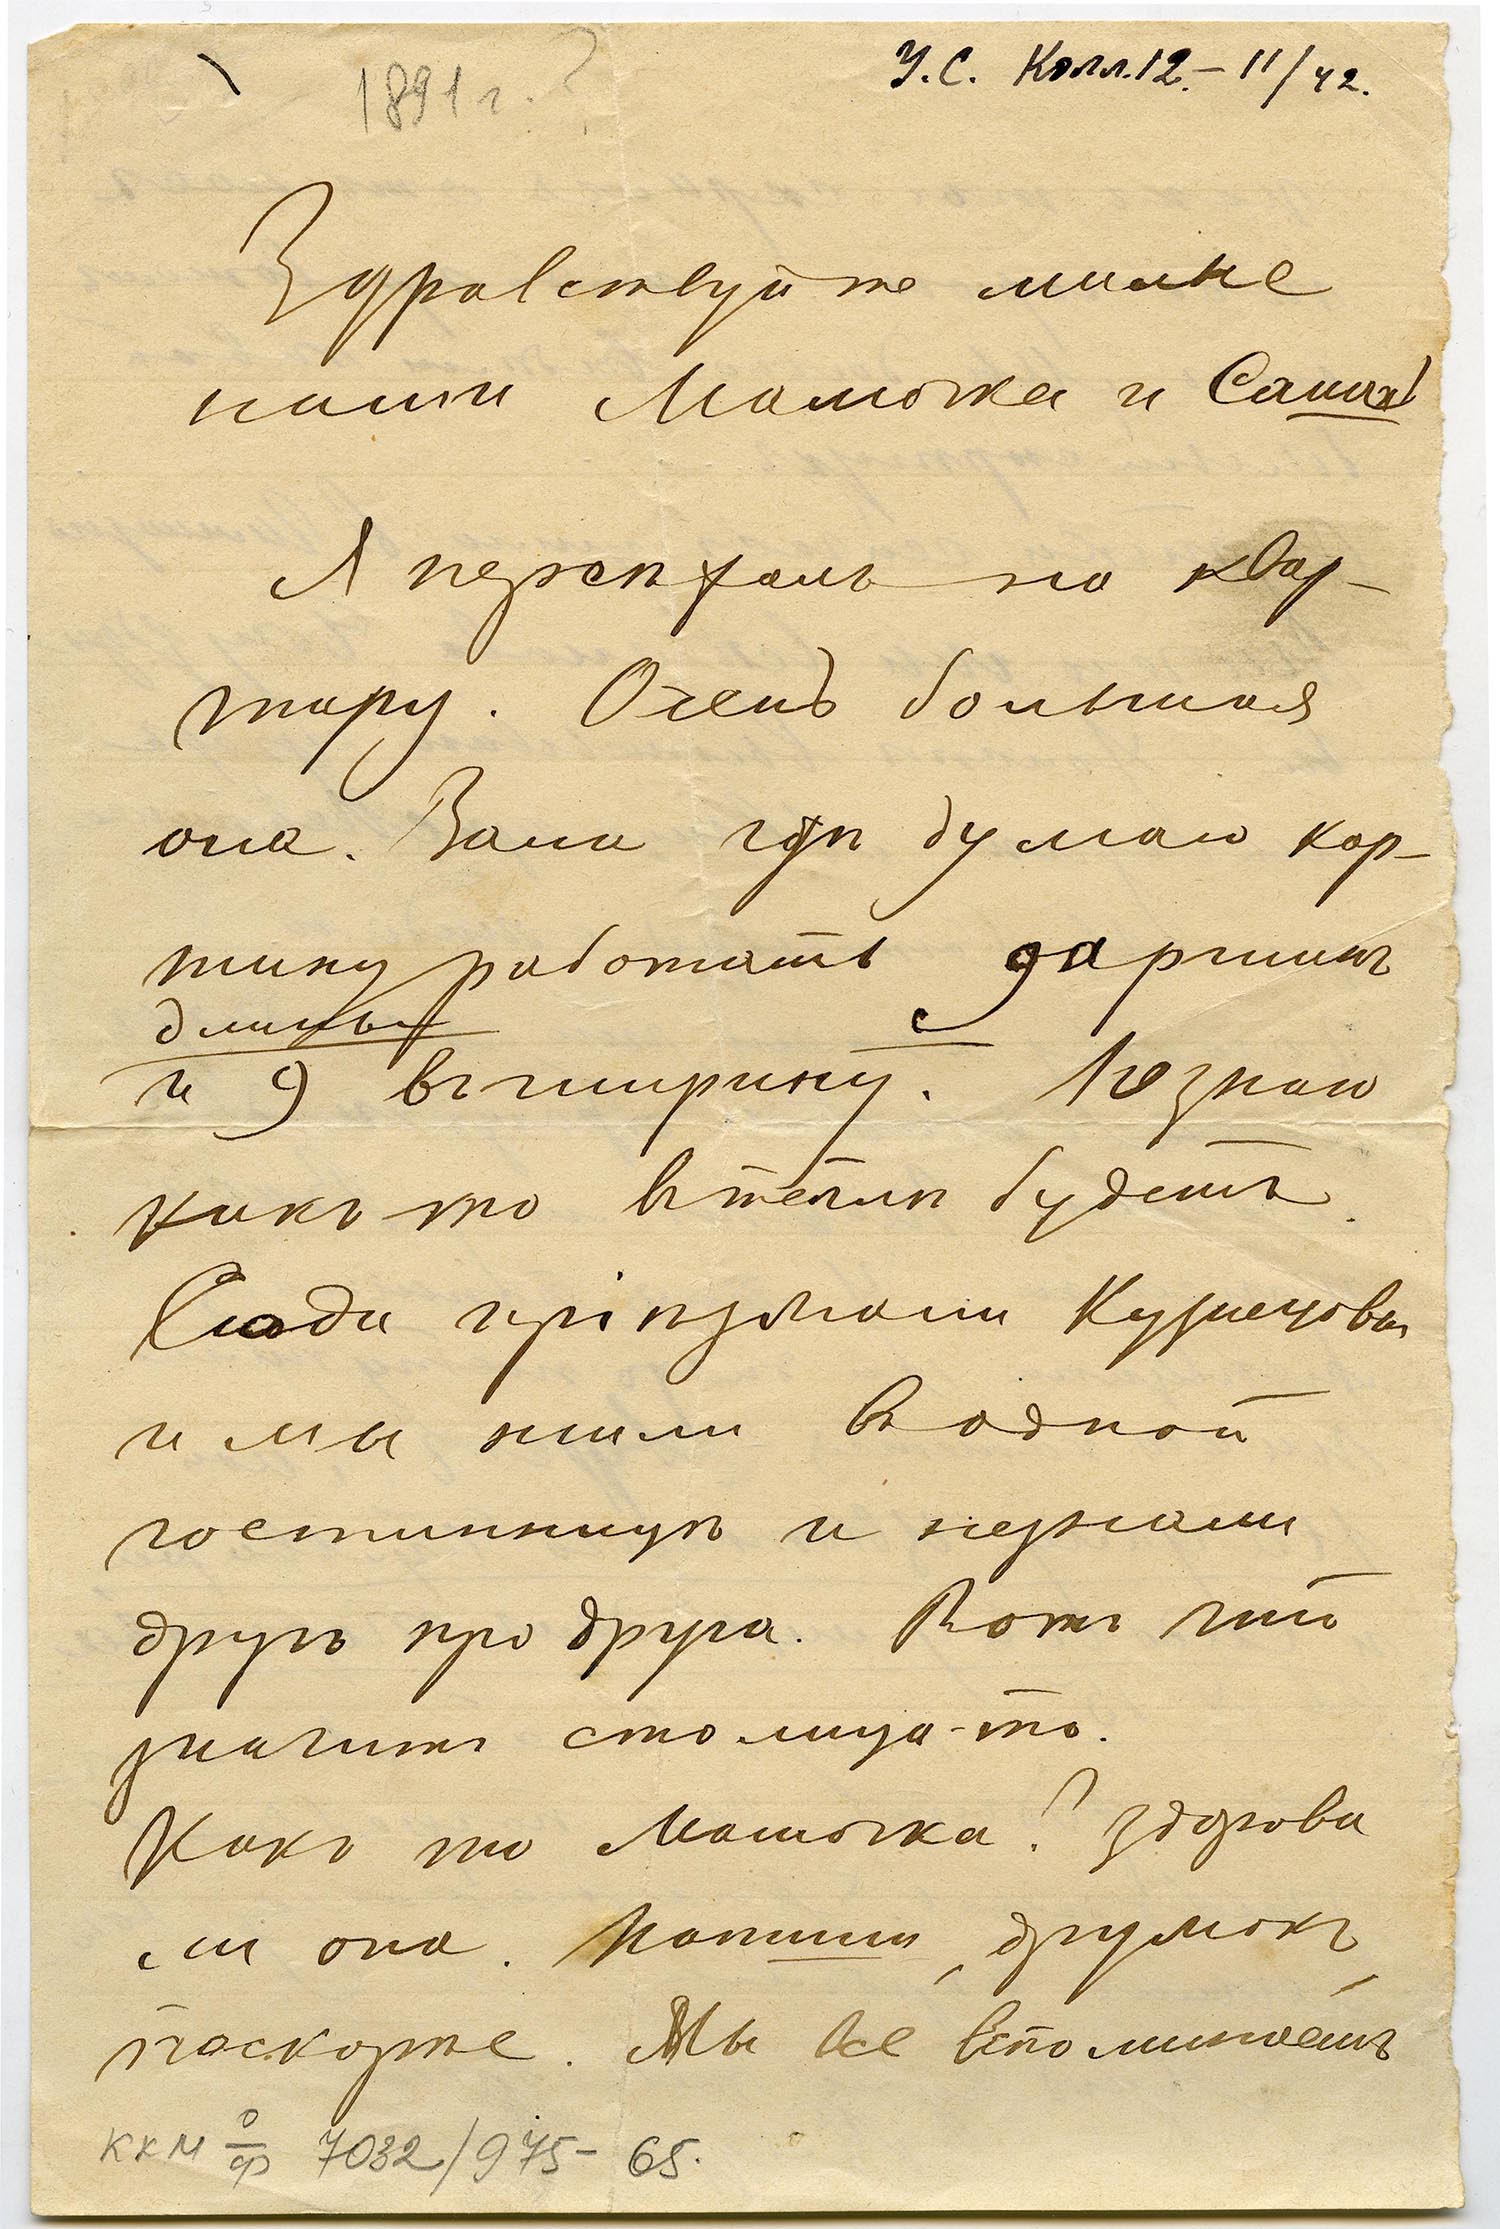 1891 г. ?
У.С. Колл. 12. – 11/42.
Здравствуйте милые
наши Мамочка и Саша!
Я переѣхалъ на квар-
тиру. Очень большая
она. Зала гдѣ думаю кар-
тину работать аршинъ
длины
и 9 въ ширину. Незнаю
какъ то въ тѣсть будетъ.
Сюда пріѣзжали Кузнецовы
и мы жили въ одной
гостинницѣ и незнали
другъ про друга. Вотъ что
значитъ столица-то.
Какъ то Мамочка? здорова
ли она. Напиши, дружокъ,
поскорже. Мы все вспоминаемъ
ККМ о/ф 7032/975– 65.